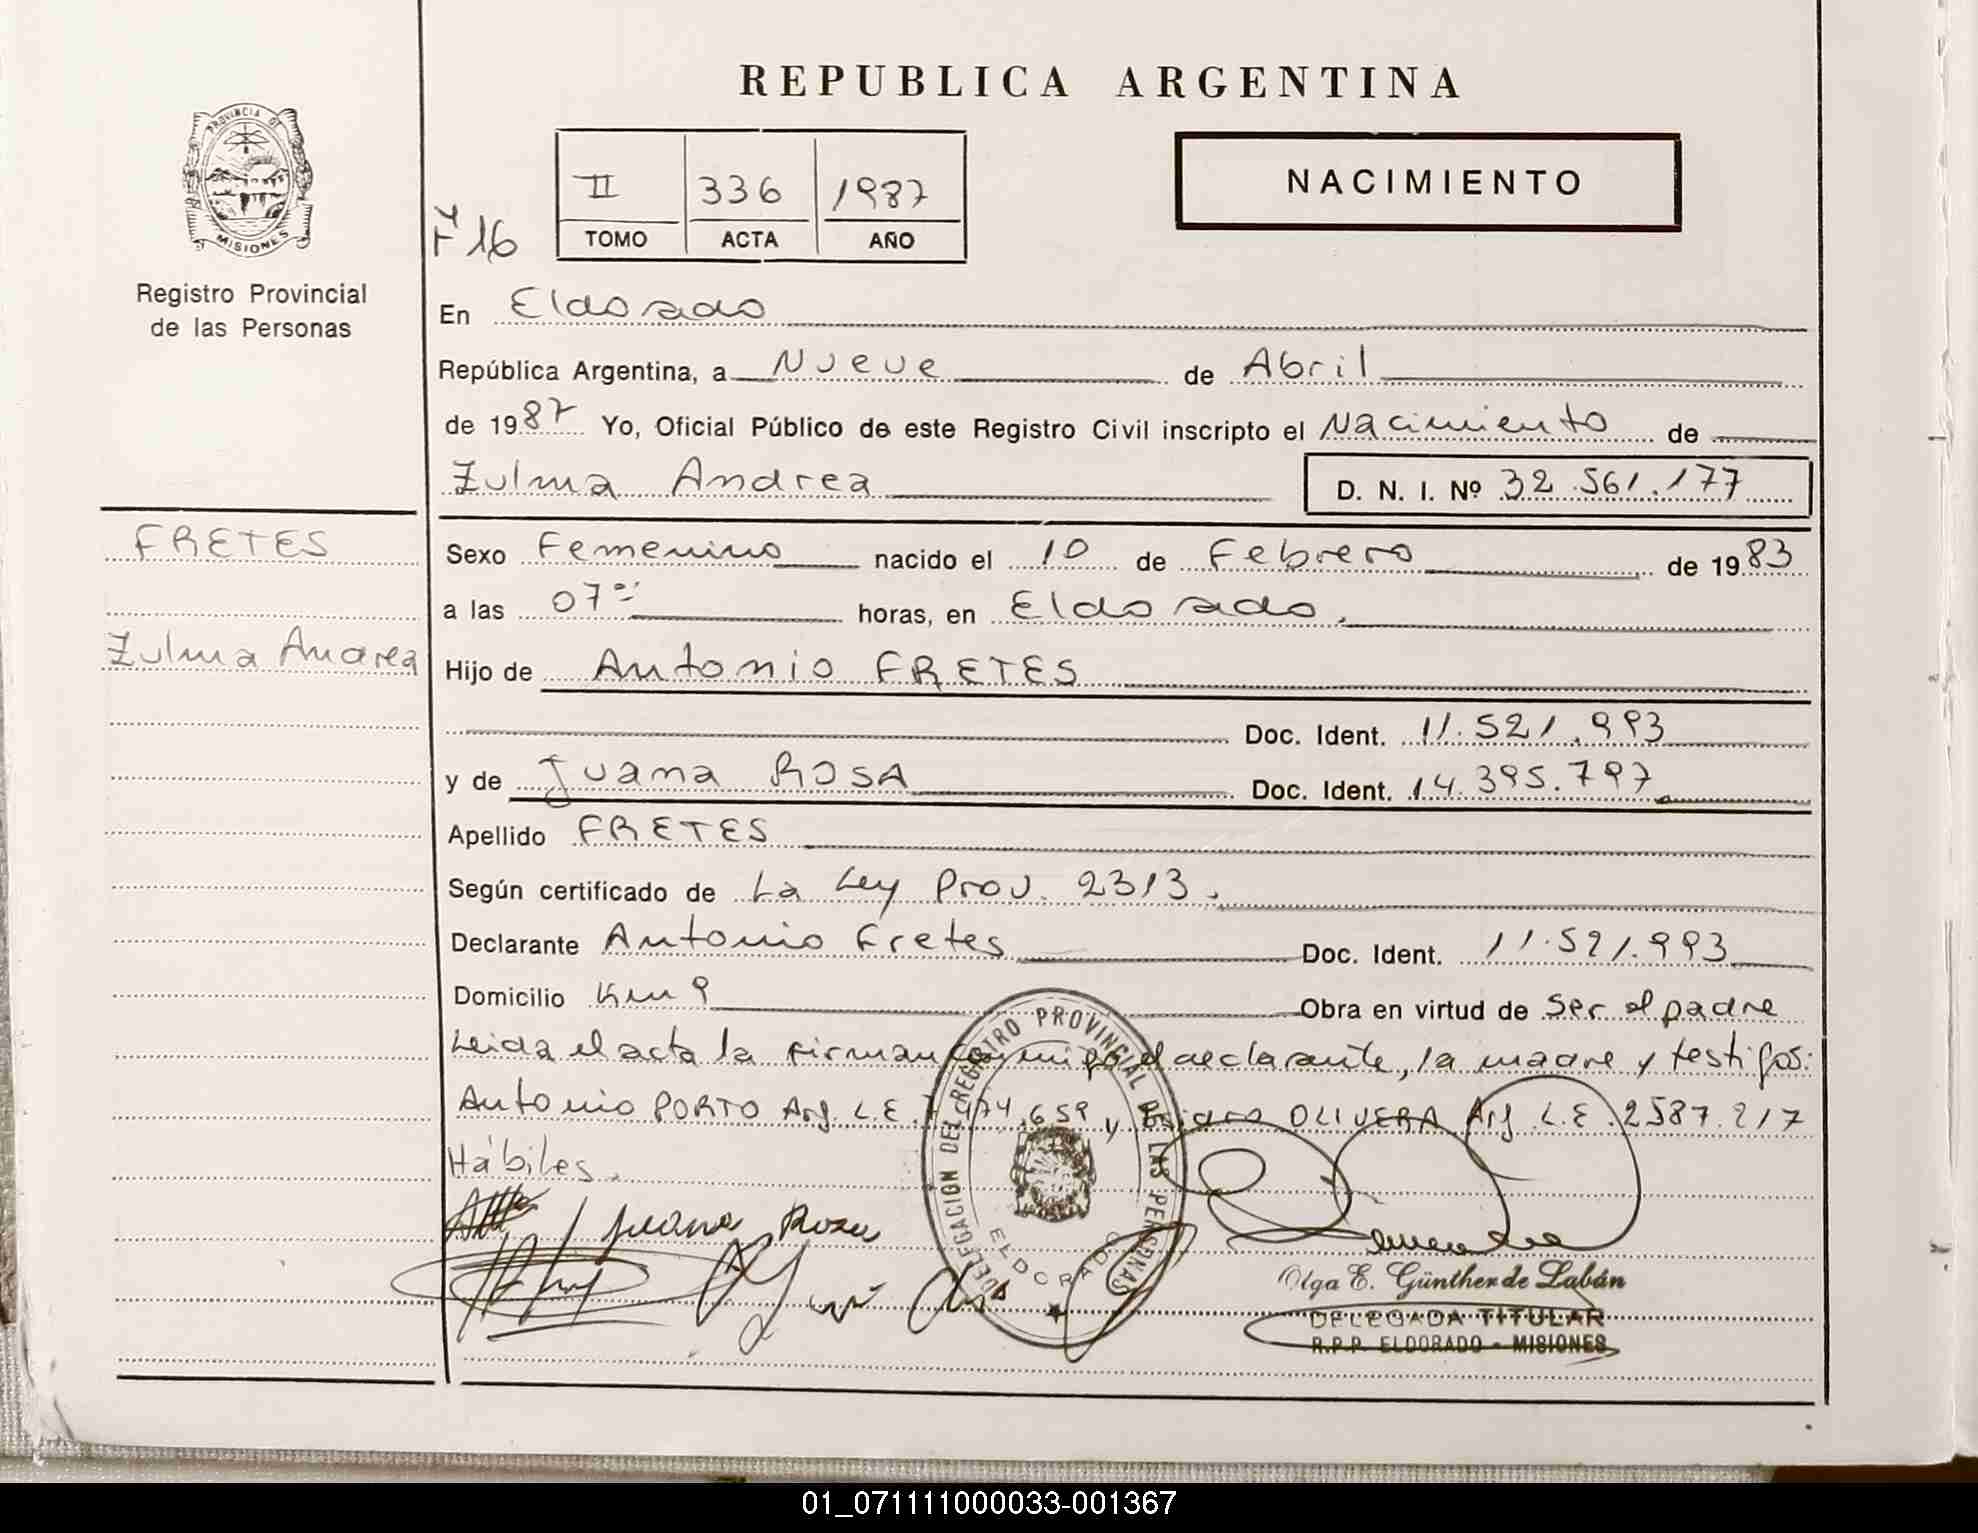 REPUBLICA ARGENTINA
PROVINCIA DE
MISIONES
Registro Provincial
de las Personas
II 336 1987
TOMO ACTA AÑO
NACIMIENTO
F 16
En Eldorado
República Argentina, a Nueve de Abril
de 1987 Yo, Oficial Público de este Registro Civil inscripto el Nacimiento de
Zulma Andrea D. N. I. Nº 32.561.177
FRETES
Zulma Andrea
Sexo Femenino nacido el 10 de Febrero de 1983
a las 07 horas, en Eldorado.
Hijo de Antonio FRETES
Doc. Ident. 11.521.993
y de Juana ROSA Doc. Ident. 14.395.797
Apellido FRETES
Según certificado de La Ley Prov. 2313.
Declarante Antonio Fretes Doc. Ident. 11.521.993
Domicilio Km 9 Obra en virtud de Ser el padre
Leida el acta la firman conmigo el declarante, la madre y testigos:
Antonio PORTO Arg. L.E. 174.659 y OLIVERA Arg. L.E. 2587.217
Hábiles.
Juana Rosa
DELEGACION DEL REGISTRO PROVINCIAL DE LAS PERSONAS
ELDORADO
Olga E. Günther de Labán
DELEGADA TITULAR
R.P.P. ELDORADO - MISIONES
01_071111000033-001367